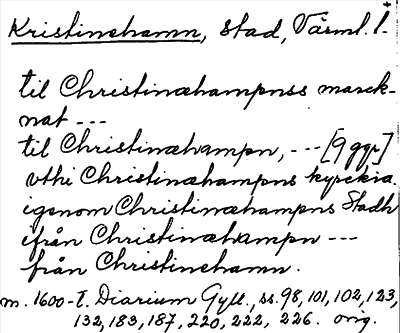 Kristinehamn, stad, Värml. l.
til Christinæhampnss marck-
nat ---
til Christinæhampn, --- [9 ggr]
vthi Christinæhampns kyrckia.
igenom Christinæhampns Stadh
ifrån Christinæhampn ---
från Christinehamn.
m. 1600-t. Diarium Gyll., ss. 98, 101, 102, 123,
132, 183, 187, 220, 222, 226. orig.